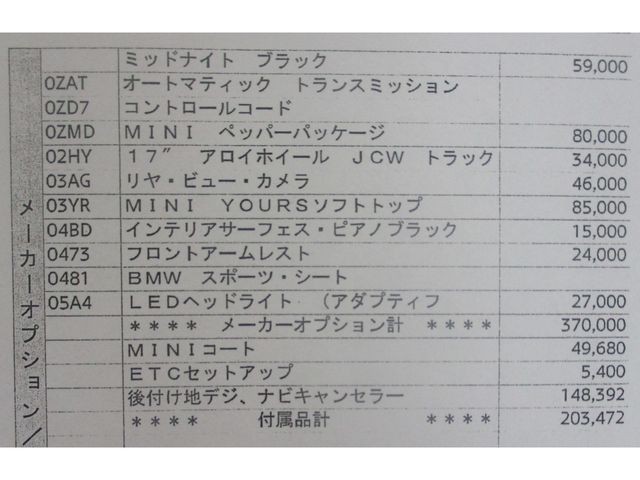 ミッドナイト ブラック 59,000
0ZAT オートマティック トランスミッション
0ZD7 コントロールコード
0ZMD ＭＩＮＩ ペッパーパッケージ 80,000
02HY １７″ アロイホイール ＪＣＷ トラック 34,000
03AG リヤ・ビュー・カメラ 46,000
03YR ＭＩＮＩ ＹＯＵＲＳソフトトップ 85,000
04BD インテリアサーフェス・ピアノブラック 15,000
0473 フロントアームレスト 24,000
0481 ＢＭＷ スポーツ・シート
05A4 ＬＥＤヘッドライト （アダプティフ 27,000
＊＊＊＊ メーカーオプション計 ＊＊＊＊ 370,000
ＭＩＮＩコート 49,680
ＥＴＣセットアップ 5,400
後付け地デジ、ナビキャンセラー 148,392
＊＊＊＊ 付属品計 ＊＊＊＊ 203,472
メーカーオプション／